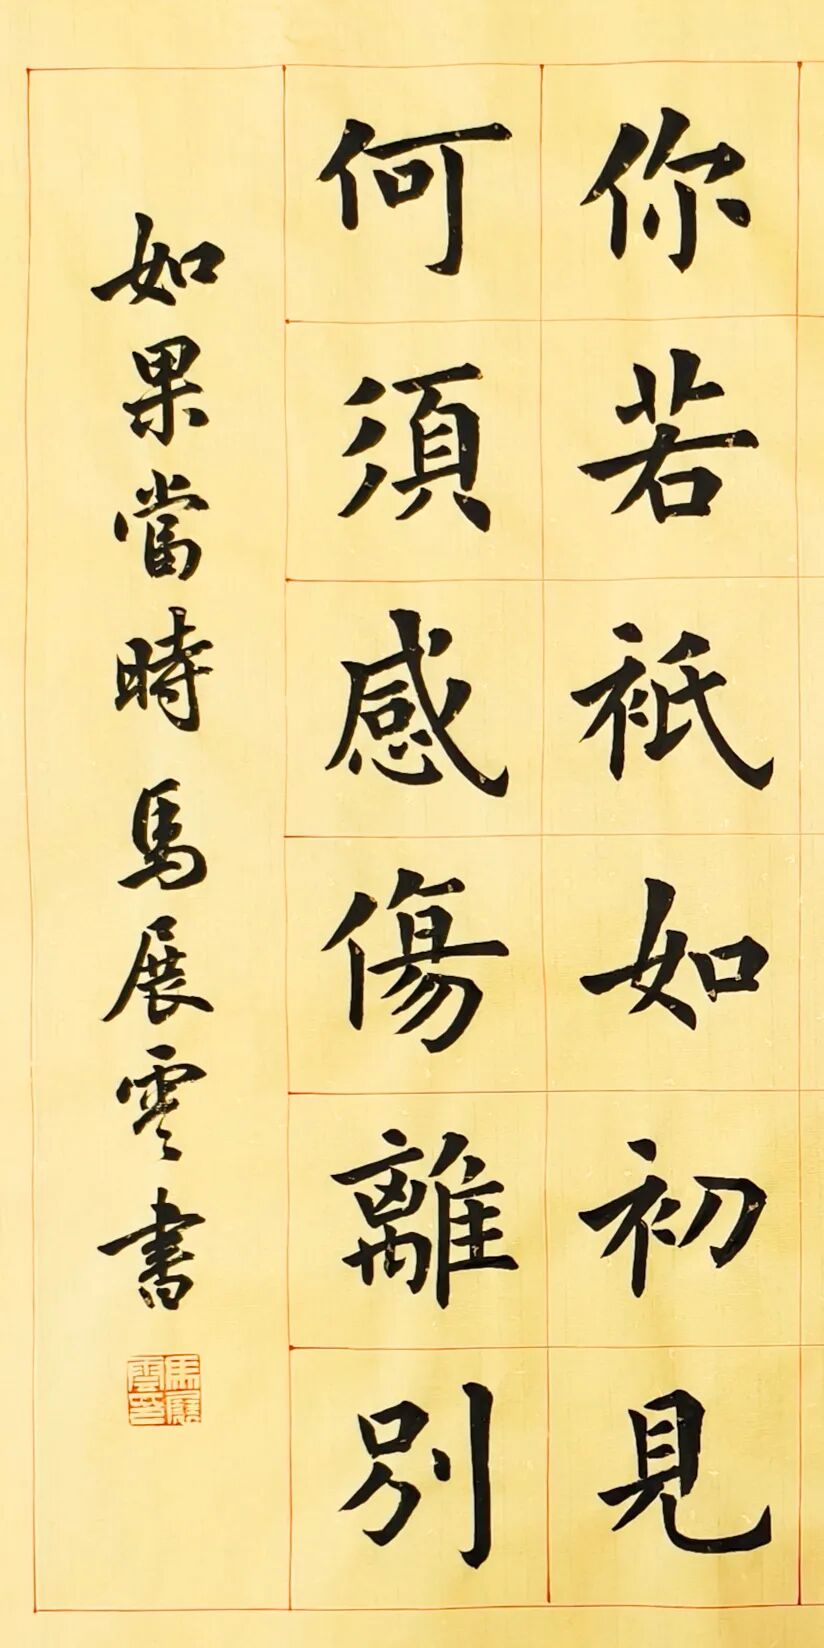 你若衹如初見
何須感傷離別
如果當時 馬展雲書
馬展雲印